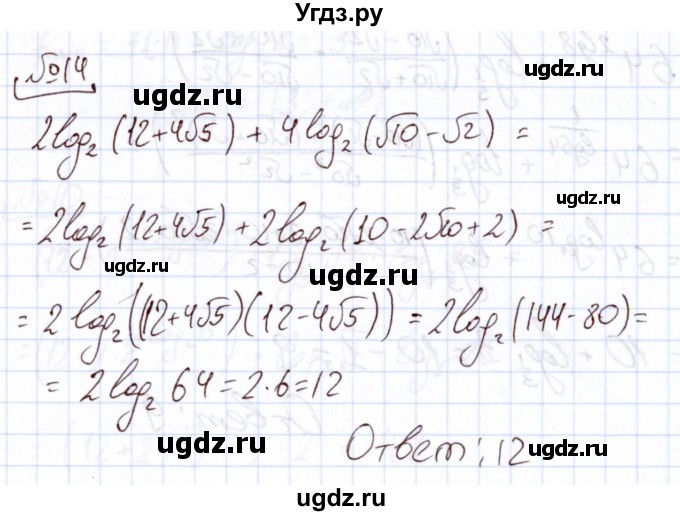 Угдз.ру
№14
ugdz.ru
ugdz.ru
2log₂(12+4√5) + 4log₂(√10-√2) =
ugdz.ru
= 2log₂(12+4√5) + 2log₂(10-2√20+2) =
ugdz.ru
ugdz.ru
= 2log₂((12+4√5)(12-4√5)) = 2log₂(144-80) =
ugdz.ru
= 2log₂64 = 2·6 = 12
ugdz.ru
Ответ: 12
ugdz.ru
ugdz.ru